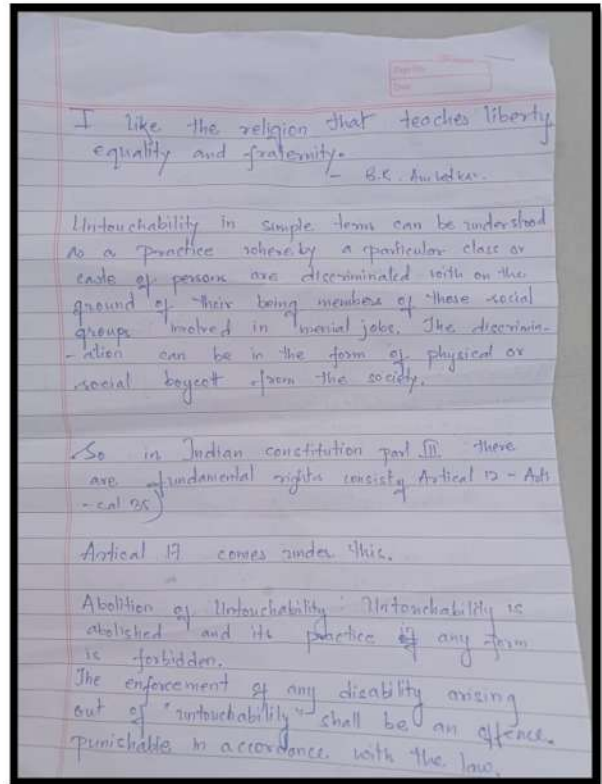 Page No.
Date
I like the religion that teaches liberty,
equality and fraternity.
- B.R. Ambedkar.
Untouchability in simple terms can be understood
as a practice whereby a particular class or
caste of persons are discriminated with on the
ground of their being members of those social
groups involved in menial jobs. The discrimin-
-ation can be in the form of physical or
social boycott from the society.
So in Indian constitution part III there
are fundamental rights consist of Artical 12 - Arti
-cal 35)
Artical 17 comes under this.
Abolition of Untouchability: Untouchability is
abolished and its practice of any form
is forbidden.
The enforcement of any disability arising
out of "untouchability" shall be an offence.
punishable in accordance with the law.